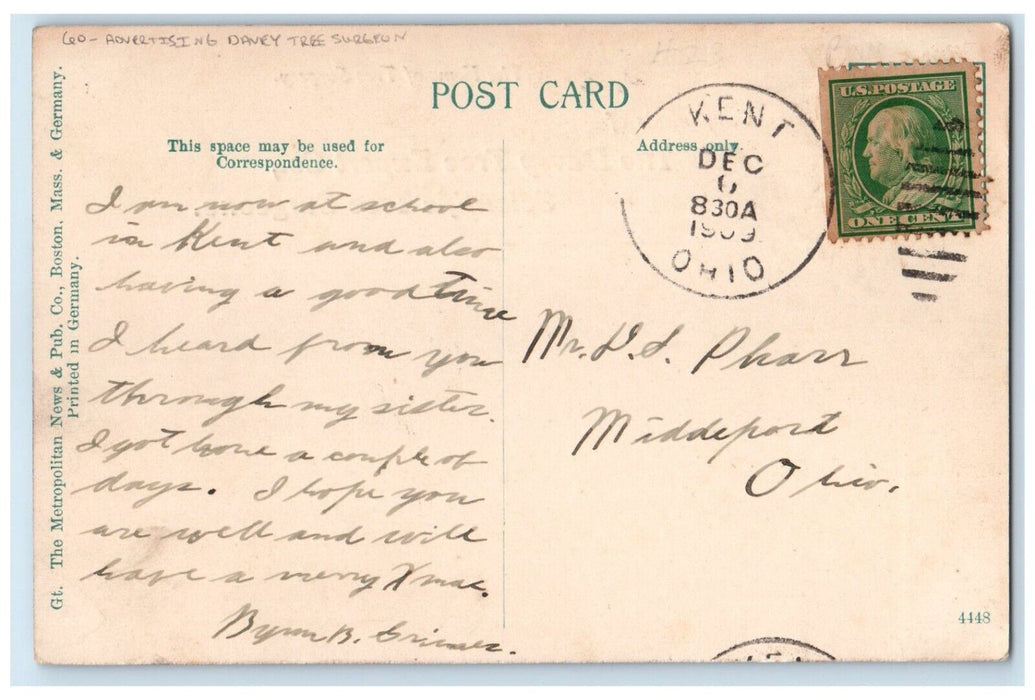 60- ADVERTISING DAVEY TREE SURGEON
POST CARD
This space may be used for
Correspondence.
Address only.
Gt. The Metropolitan News & Pub. Co., Boston. Mass. & Germany.
Printed in Germany.
KENT
DEC
6
830A
1909
OHIO
U.S. POSTAGE
ONE CENT
I am now at school
in Kent and also
having a good Time
I heard from you
through my sister.
I got home a couple of
days. I hope you
are well and will
have a merry Xmas.
Byron B. Grimes.
Mr. D. S. Pharr
Middeport
Ohio.
4448